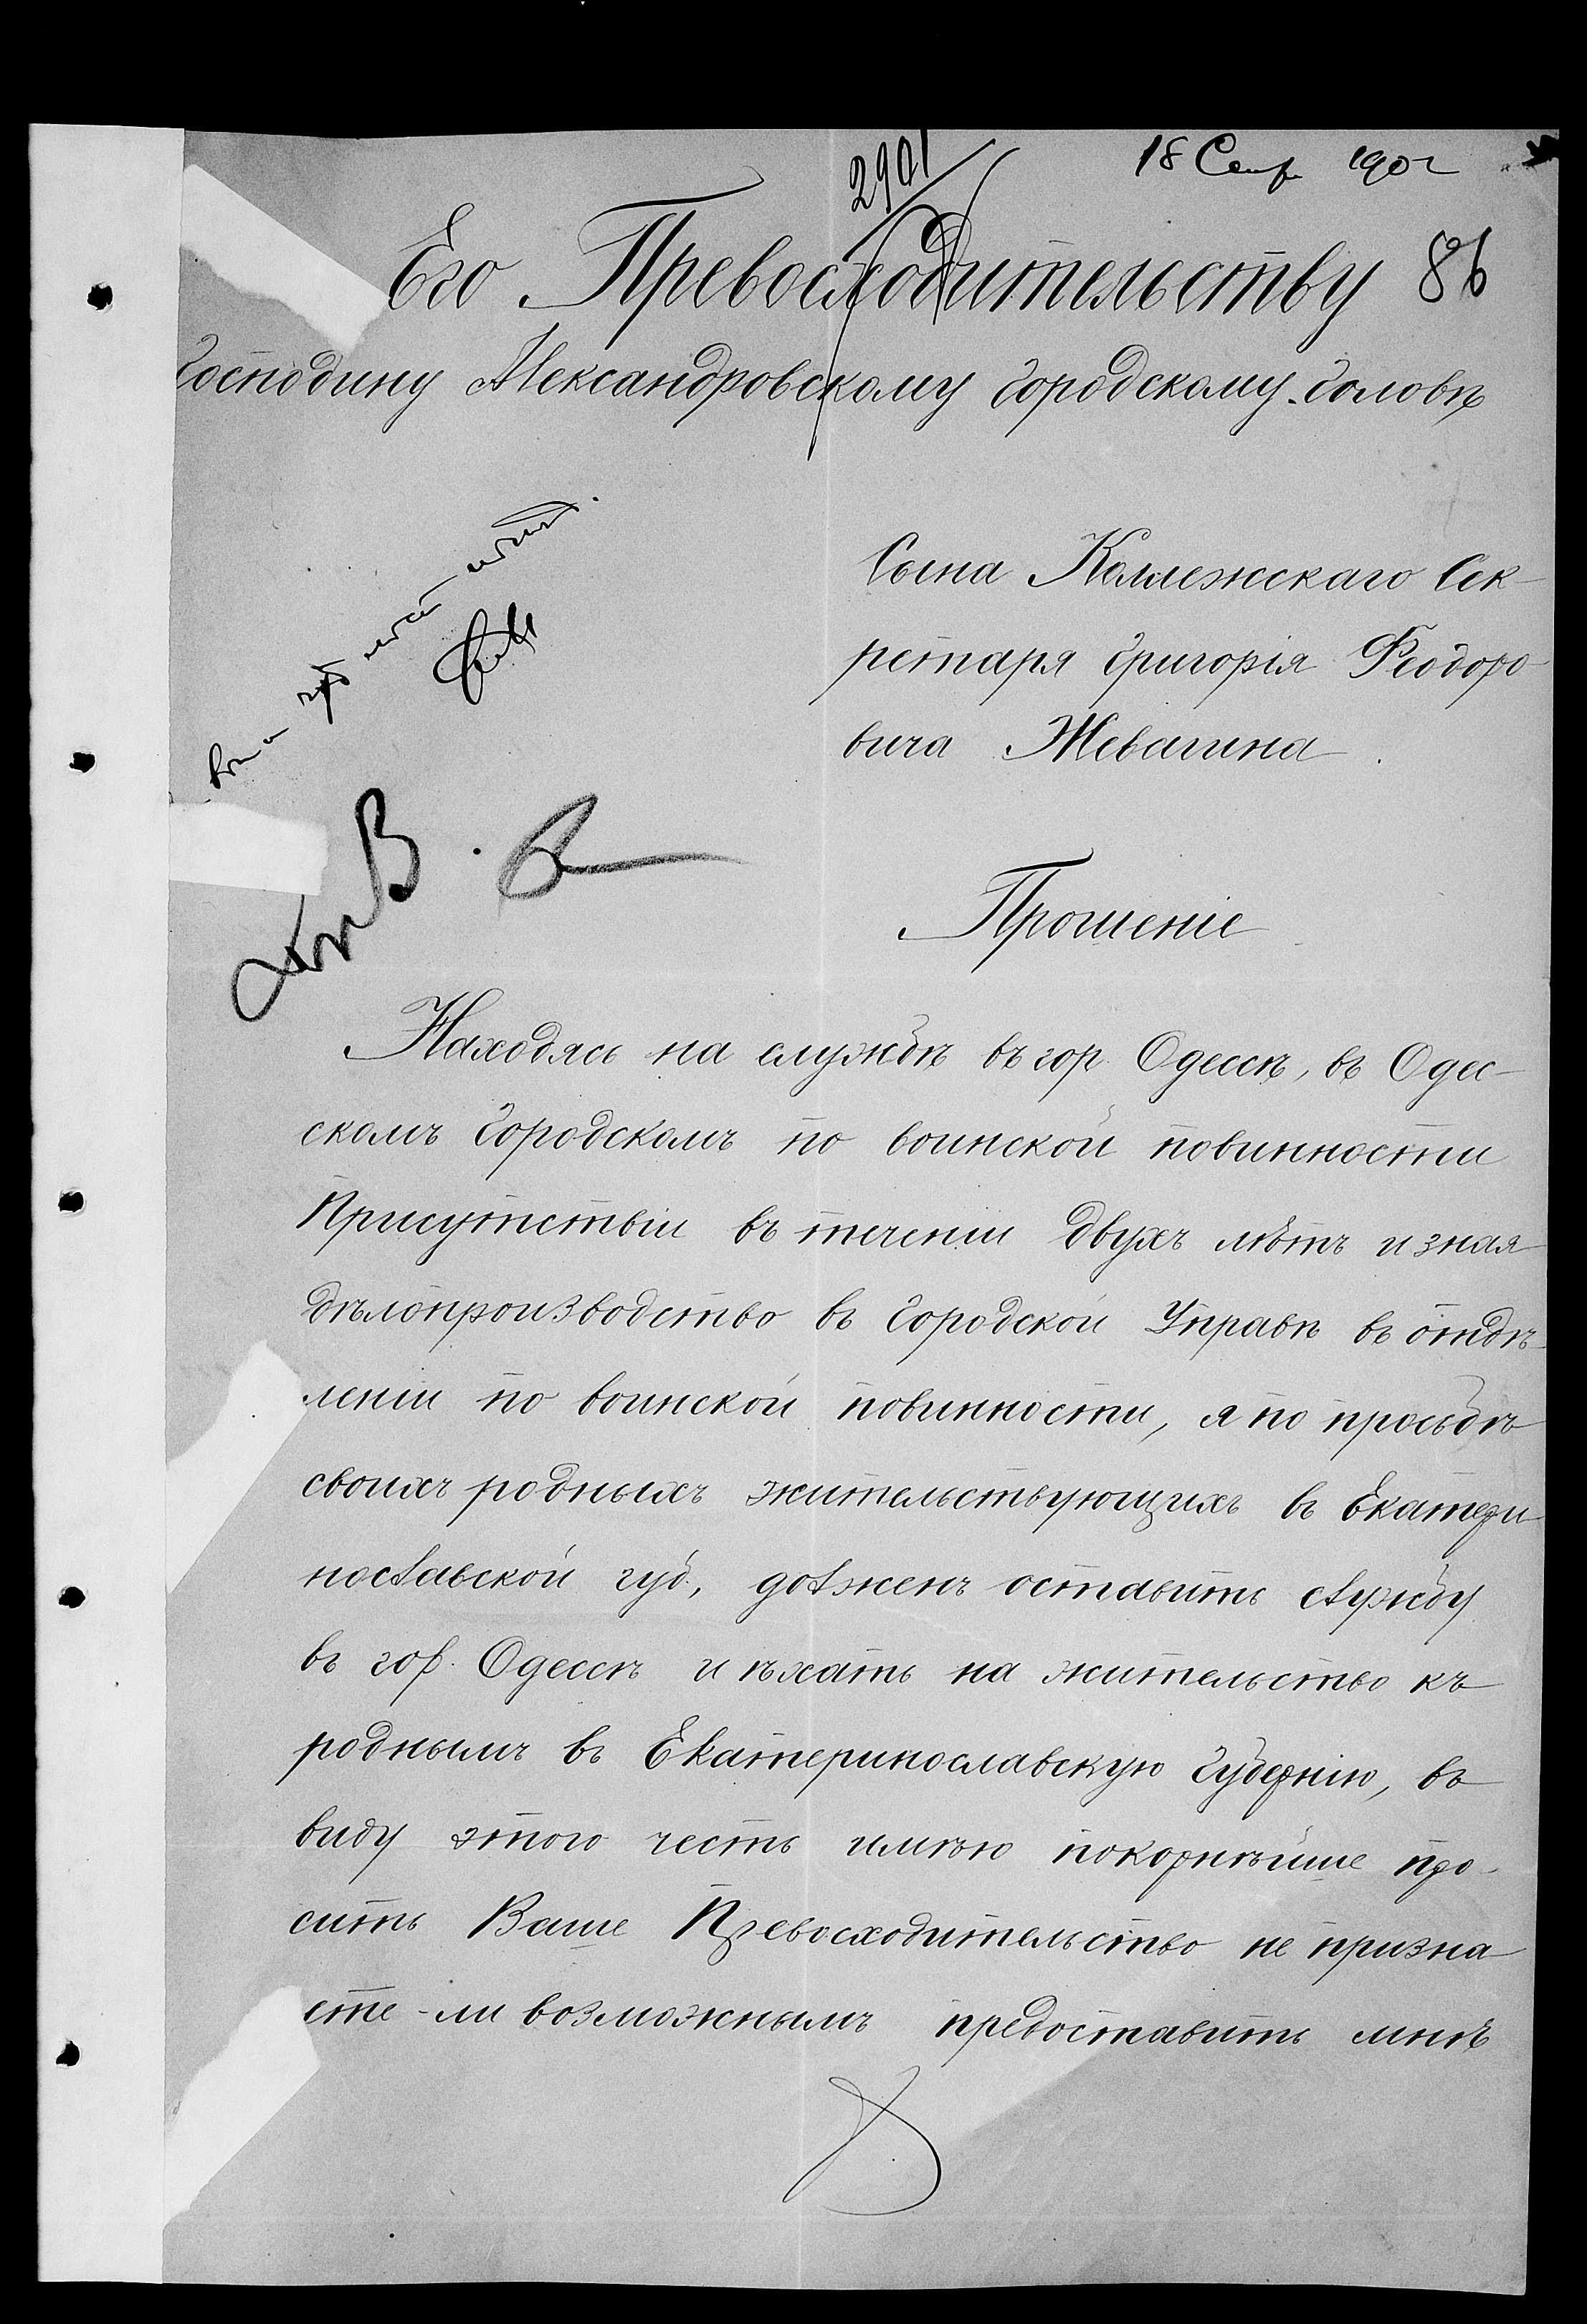 2901
18 Сент 1902
Его Превосходительству 86
Господину Александровскому Городскому Головѣ
Сына Коллежскаго Сек-
ретаря Григорія Феодоро-
вича Жевагина.
Прошеніе
Находясь на службѣ въ гор. Одессѣ, въ Одес-
скомъ Городскомъ по воинской повинности
Присутствіи въ теченіи двухъ лѣтъ и зная
дѣлопроизводство въ Городской Управѣ въ отдѣ-
леніи по воинской повинности, я по просьбѣ
своихъ родныхъ жительствующихъ въ Екатери-
нославской губ., долженъ оставить службу
въ гор. Одессѣ и ѣхать на жительство къ
роднымъ въ Екатеринославскую Губернію, въ
виду этого честь имѣю покорнѣйше про-
сить Ваше Превосходительство не призна-
ете-ли возможнымъ предоставить мнѣ